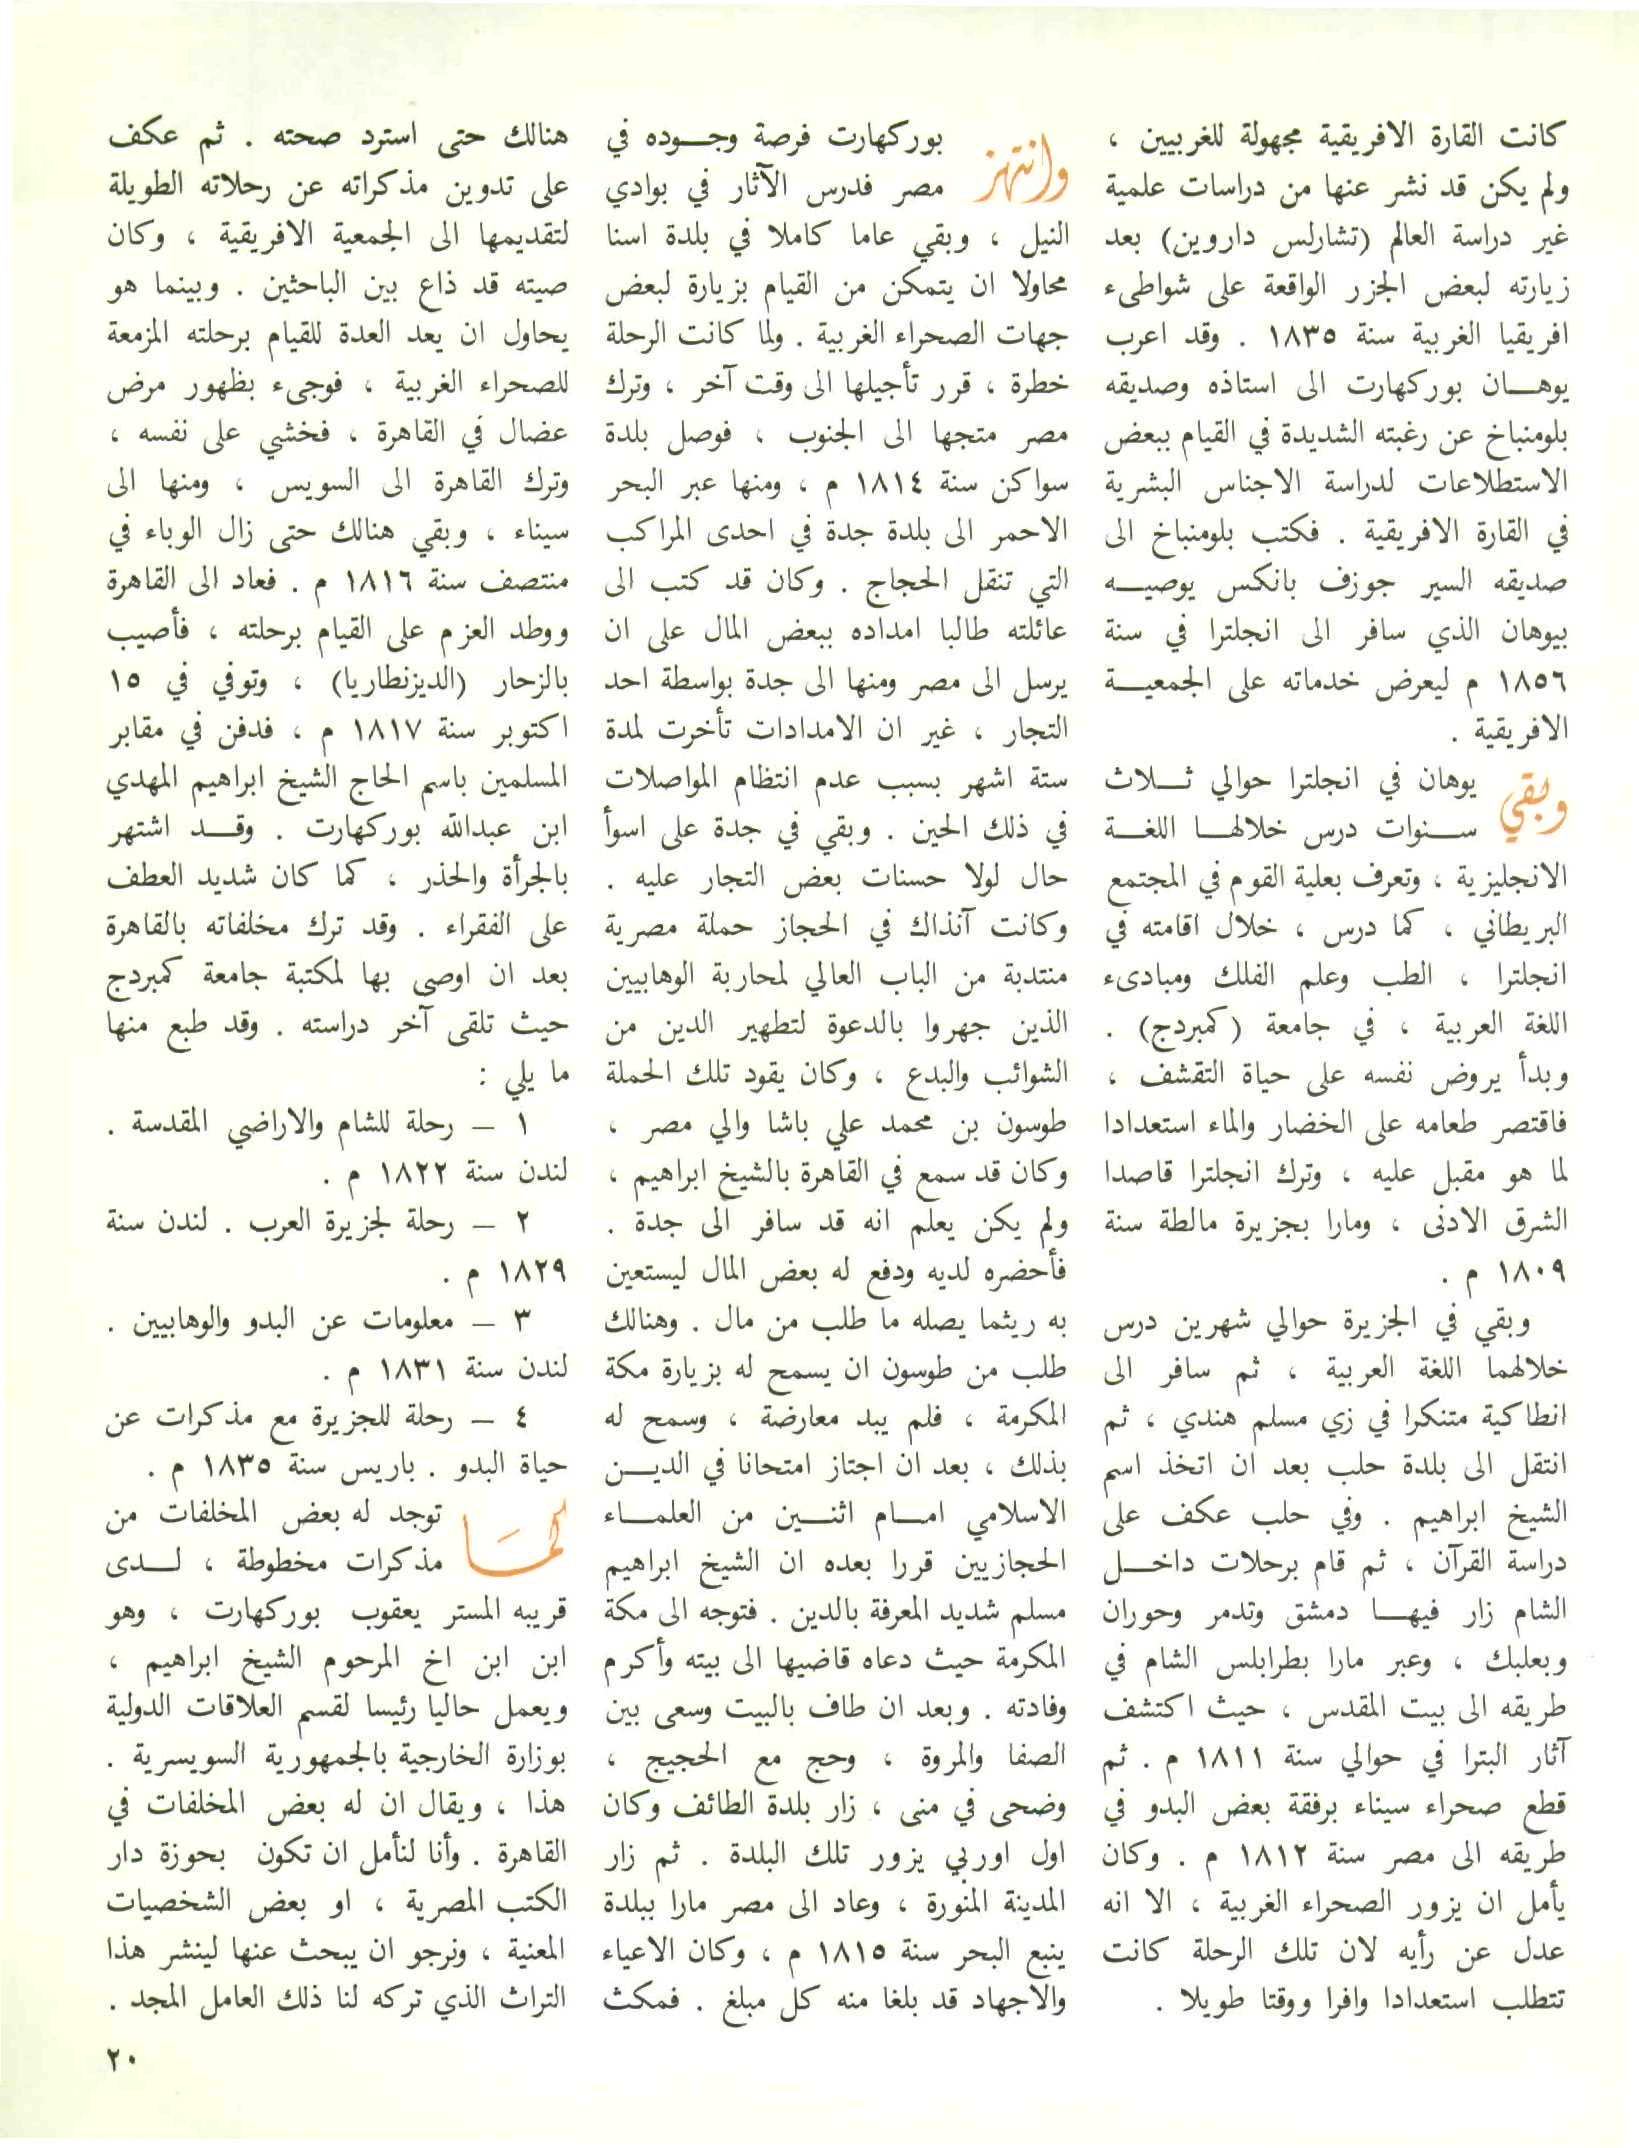 كانت القارة الافريقية مجهولة للغربيين ،
ولم يكن قد نشر عنها من دراسات علمية
غير دراسة العالم (تشارلس داروين) بعد
زيارته لبعض الجزر الواقعة على شواطىء
افريقيا الغربية سنة ١٨٣٥ . وقد اعرب
يوهـــان بوركهارت الى استاذه وصديقه
بلومنباخ عن رغبته الشديدة في القيام ببعض
الاستطلاعات لدراسة الاجناس البشرية
في القارة الافريقية . فكتب بلومنباخ الى
صديقه السير جوزف بانكس يوصيــه
بيوهان الذي سافر الى انجلترا في سنة
١٨٥٦ م ليعرض خدماته على الجمعيــة
الافريقية .
وبقي يوهان في انجلترا حوالي ثــلاث
ســنوات درس خلالهــا اللغــة
الانجليزية ، وتعرف بعلية القوم في المجتمع
البريطاني ، كما درس ، خلال اقامته في
انجلترا ، الطب وعلم الفلك ومبادىء
اللغة العربية ، في جامعة (كمبردج) .
وبدأ يروض نفسه على حياة التقشف ،
فاقتصر طعامه على الخضار والماء استعدادا
لما هو مقبل عليه ، وترك انجلترا قاصدا
الشرق الادنى ، ومارا بجزيرة مالطة سنة
١٨٠٩ م .
وبقي في الجزيرة حوالي شهرين درس
خلالهما اللغة العربية ، ثم سافر الى
انطاكية متنكرا في زي مسلم هندي ، ثم
انتقل الى بلدة حلب بعد ان اتخذ اسم
الشيخ ابراهيم . وفي حلب عكف على
دراسة القرآن ، ثم قام برحلات داخــل
الشام زار فيهــا دمشق وتدمر وحوران
وبعلبك ، وعبر مارا بطرابلس الشام في
طريقه الى بيت المقدس ، حيث اكتشف
آثار البترا في حوالي سنة ١٨١١ م . ثم
قطع صحراء سيناء برفقة بعض البدو في
طريقه الى مصر سنة ١٨١٢ م . وكان
يأمل ان يزور الصحراء الغربية ، الا انه
عدل عن رأيه لان تلك الرحلة كانت
تتطلب استعدادا وافرا ووقتا طويلا .
وانتهز بوركهارت فرصة وجــوده في
مصر فدرس الآثار في بوادي
النيل ، وبقي عاما كاملا في بلدة اسنا
محاولا ان يتمكن من القيام بزيارة لبعض
جهات الصحراء الغربية . ولما كانت الرحلة
خطرة ، قرر تأجيلها الى وقت آخر ، وترك
مصر متجها الى الجنوب ، فوصل بلدة
سواكن سنة ١٨١٤ م ، ومنها عبر البحر
الاحمر الى بلدة جدة في احدى المراكب
التي تنقل الحجاج . وكان قد كتب الى
عائلته طالبا امداده ببعض المال على ان
يرسل الى مصر ومنها الى جدة بواسطة احد
التجار ، غير ان الامدادات تأخرت لمدة
ستة اشهر بسبب عدم انتظام المواصلات
في ذلك الحين . وبقي في جدة على اسوأ
حال لولا حسنات بعض التجار عليه .
وكانت آنذاك في الحجاز حملة مصرية
منتدبة من الباب العالي لمحاربة الوهابيين
الذين جهروا بالدعوة لتطهير الدين من
الشوائب والبدع ، وكان يقود تلك الحملة
طوسون بن محمد علي باشا والي مصر ،
وكان قد سمع في القاهرة بالشيخ ابراهيم ،
ولم يكن يعلم انه قد سافر الى جدة .
فأحضره لديه ودفع له بعض المال ليستعين
به ريثما يصله ما طلب من مال . وهنالك
طلب من طوسون ان يسمح له بزيارة مكة
المكرمة ، فلم يبد معارضة ، وسمح له
بذلك ، بعد ان اجتاز امتحانا في الديــن
الاسلامي امــام اثنــين من العلمــاء
الحجازيين قررا بعده ان الشيخ ابراهيم
مسلم شديد المعرفة بالدين . فتوجه الى مكة
المكرمة حيث دعاه قاضيها الى بيته وأكرم
وفادته . وبعد ان طاف بالبيت وسعى بين
الصفا والمروة ، وحج مع الحجيج ،
وضحى في منى ، زار بلدة الطائف وكان
اول اوربي يزور تلك البلدة . ثم زار
المدينة المنورة ، وعاد الى مصر مارا ببلدة
ينبع البحر سنة ١٨١٥ م ، وكان الاعياء
والاجهاد قد بلغا منه كل مبلغ . فمكث
هنالك حتى استرد صحته . ثم عكف
على تدوين مذكراته عن رحلاته الطويلة
لتقديمها الى الجمعية الافريقية ، وكان
صيته قد ذاع بين الباحثين . وبينما هو
يحاول ان يعد العدة للقيام برحلته المزمعة
للصحراء الغربية ، فوجىء بظهور مرض
عضال في القاهرة ، فخشي على نفسه ،
وترك القاهرة الى السويس ، ومنها الى
سيناء ، وبقي هنالك حتى زال الوباء في
منتصف سنة ١٨١٦ م . فعاد الى القاهرة
ووطد العزم على القيام برحلته ، فأصيب
بالزحار (الديزنطاريا) ، وتوفي في ١٥
اكتوبر سنة ١٨١٧ م ، فدفن في مقابر
المسلمين باسم الحاج الشيخ ابراهيم المهدي
ابن عبدالله بوركهارت . وقــد اشتهر
بالجرأة والحذر ، كما كان شديد العطف
على الفقراء . وقد ترك مخلفاته بالقاهرة
بعد ان اوصى بها لمكتبة جامعة كمبردج
حيث تلقى آخر دراسته . وقد طبع منها
ما يلي :
١ – رحلة للشام والاراضي المقدسة .
لندن سنة ١٨٢٢ م .
٢ – رحلة لجزيرة العرب . لندن سنة
١٨٢٩ م .
٣ – معلومات عن البدو والوهابيين .
لندن سنة ١٨٣١ م .
٤ – رحلة للجزيرة مع مذكرات عن
حياة البدو . باريس سنة ١٨٣٥ م .
كما توجد له بعض المخلفات من
مذكرات مخطوطة ، لــدى
قريبه المستر يعقوب بوركهارت ، وهو
ابن ابن اخ المرحوم الشيخ ابراهيم ،
ويعمل حاليا رئيسا لقسم العلاقات الدولية
بوزارة الخارجية بالجمهورية السويسرية .
هذا ، ويقال ان له بعض المخلفات في
القاهرة . وأنا لنأمل ان تكون بحوزة دار
الكتب المصرية ، او بعض الشخصيات
المعنية ، ونرجو ان يبحث عنها لينشر هذا
التراث الذي تركه لنا ذلك العامل المجد .
٢٠